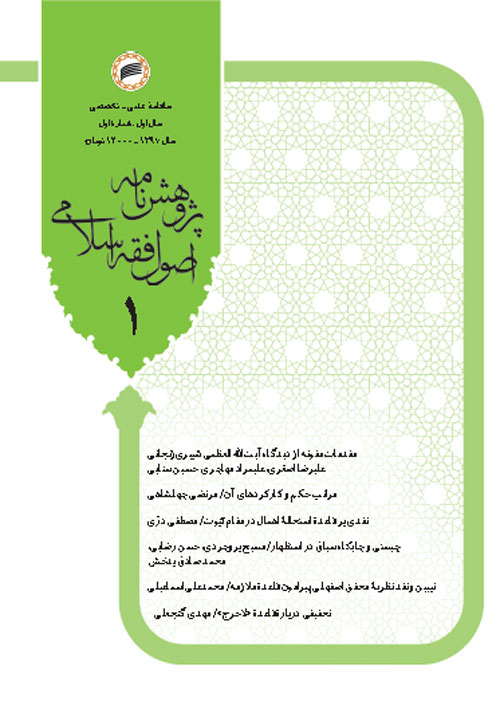 سالنامۀ علمی - تخصصی
سال اول، شماره اول
سال ۱۳۹۷ - ۱۲۰۰۰ تومان
پژوهش‌نامه
اصول فقه اسلامی
۱
مقدمات مفوته از دیدگاه آیت الله العظمی شبیری زنجانی
علیرضا اصغری، علیمراد مهاجری، حسین سنایی
مراتب حکم و کارکردهای آن/ مرتضی چهلشاهی
نقدی بر قاعدۀ استحالۀ اهمال در مقام ثبوت/ مصطفی درّی
چیستی و جایگاه سیاق در استظهار/ مسیح بروجردی، حسن رضایی،
محمدصادق بدخش
تبیین و نقد نظریۀ محقق اصفهانی پیرامون قاعدۀ ملازمه/ محمدعلی اسماعیلی
تحقیقی دربارۀ قاعدۀ «لاحرج»/ مهدی گنجعلی